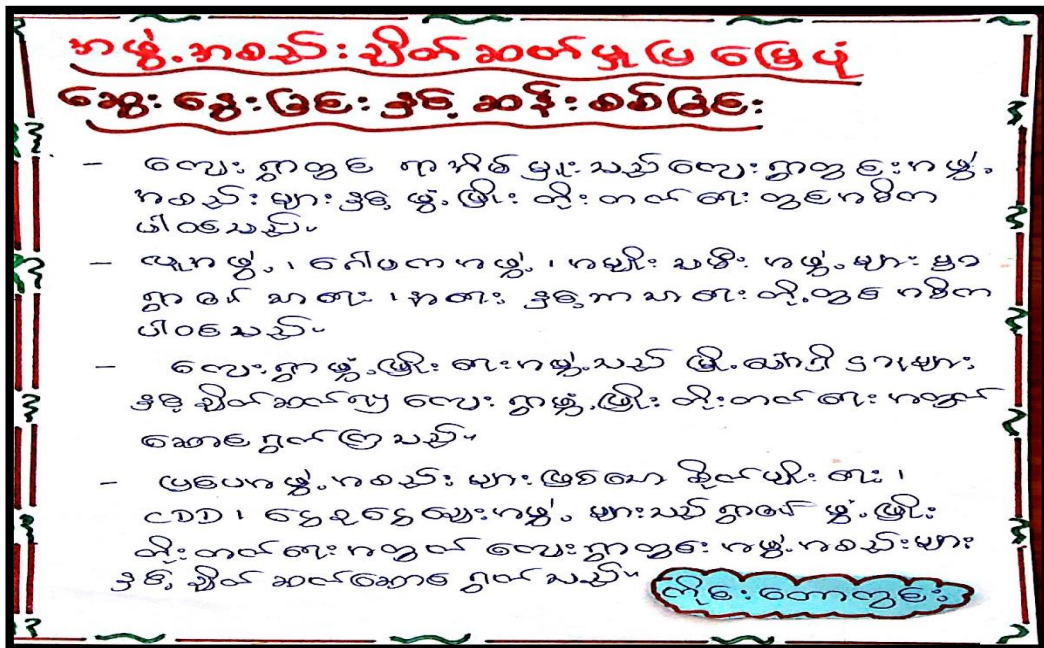 အဖွဲ့အစည်းချိတ်ဆက်မှုပြမြေပုံ
ဆွေးနွေးခြင်းနှင့်ဆန်းစစ်ခြင်း
- ကျေးရွာတွင် ရာအိမ်မှူးသည်ကျေးရွာတွင်းအဖွဲ့
အစည်းများနှင့် ဖွံ့ဖြိုးတိုးတက်ရေးတွင်အဓိက
ပါဝင်သည်။
- လူမှုအဖွဲ့၊ ဂေါပကအဖွဲ့၊ အမျိုးသမီးအဖွဲ့များမှာ
ရွာ၏ သာရေး၊ နာရေးနှင့်ဘာသာရေးတို့တွင်အဓိက
ပါဝင်သည်။
- ကျေးရွာဖွံ့ဖြိုးရေးအဖွဲ့သည် မြို့ပေါ်ရှိဌာနများ
နှင့်ချိတ်ဆက်၍ ကျေးရွာဖွံ့ဖြိုးတိုးတက်ရေးအတွက်
ဆောင်ရွက်ကြသည်။
- ပြင်ပအဖွဲ့အစည်းများဖြစ်သော စိုက်ပျိုးရေး၊
CDD၊ ငွေစုငွေချေးအဖွဲ့များသည် ရွာ၏ ဖွံ့ဖြိုး
တိုးတက်ရေးအတွက် ကျေးရွာတွင်းအဖွဲ့အစည်းများ
နှင့်ချိတ်ဆက်ဆောင်ရွက်သည်။
ကိုင်းတောတွင်း